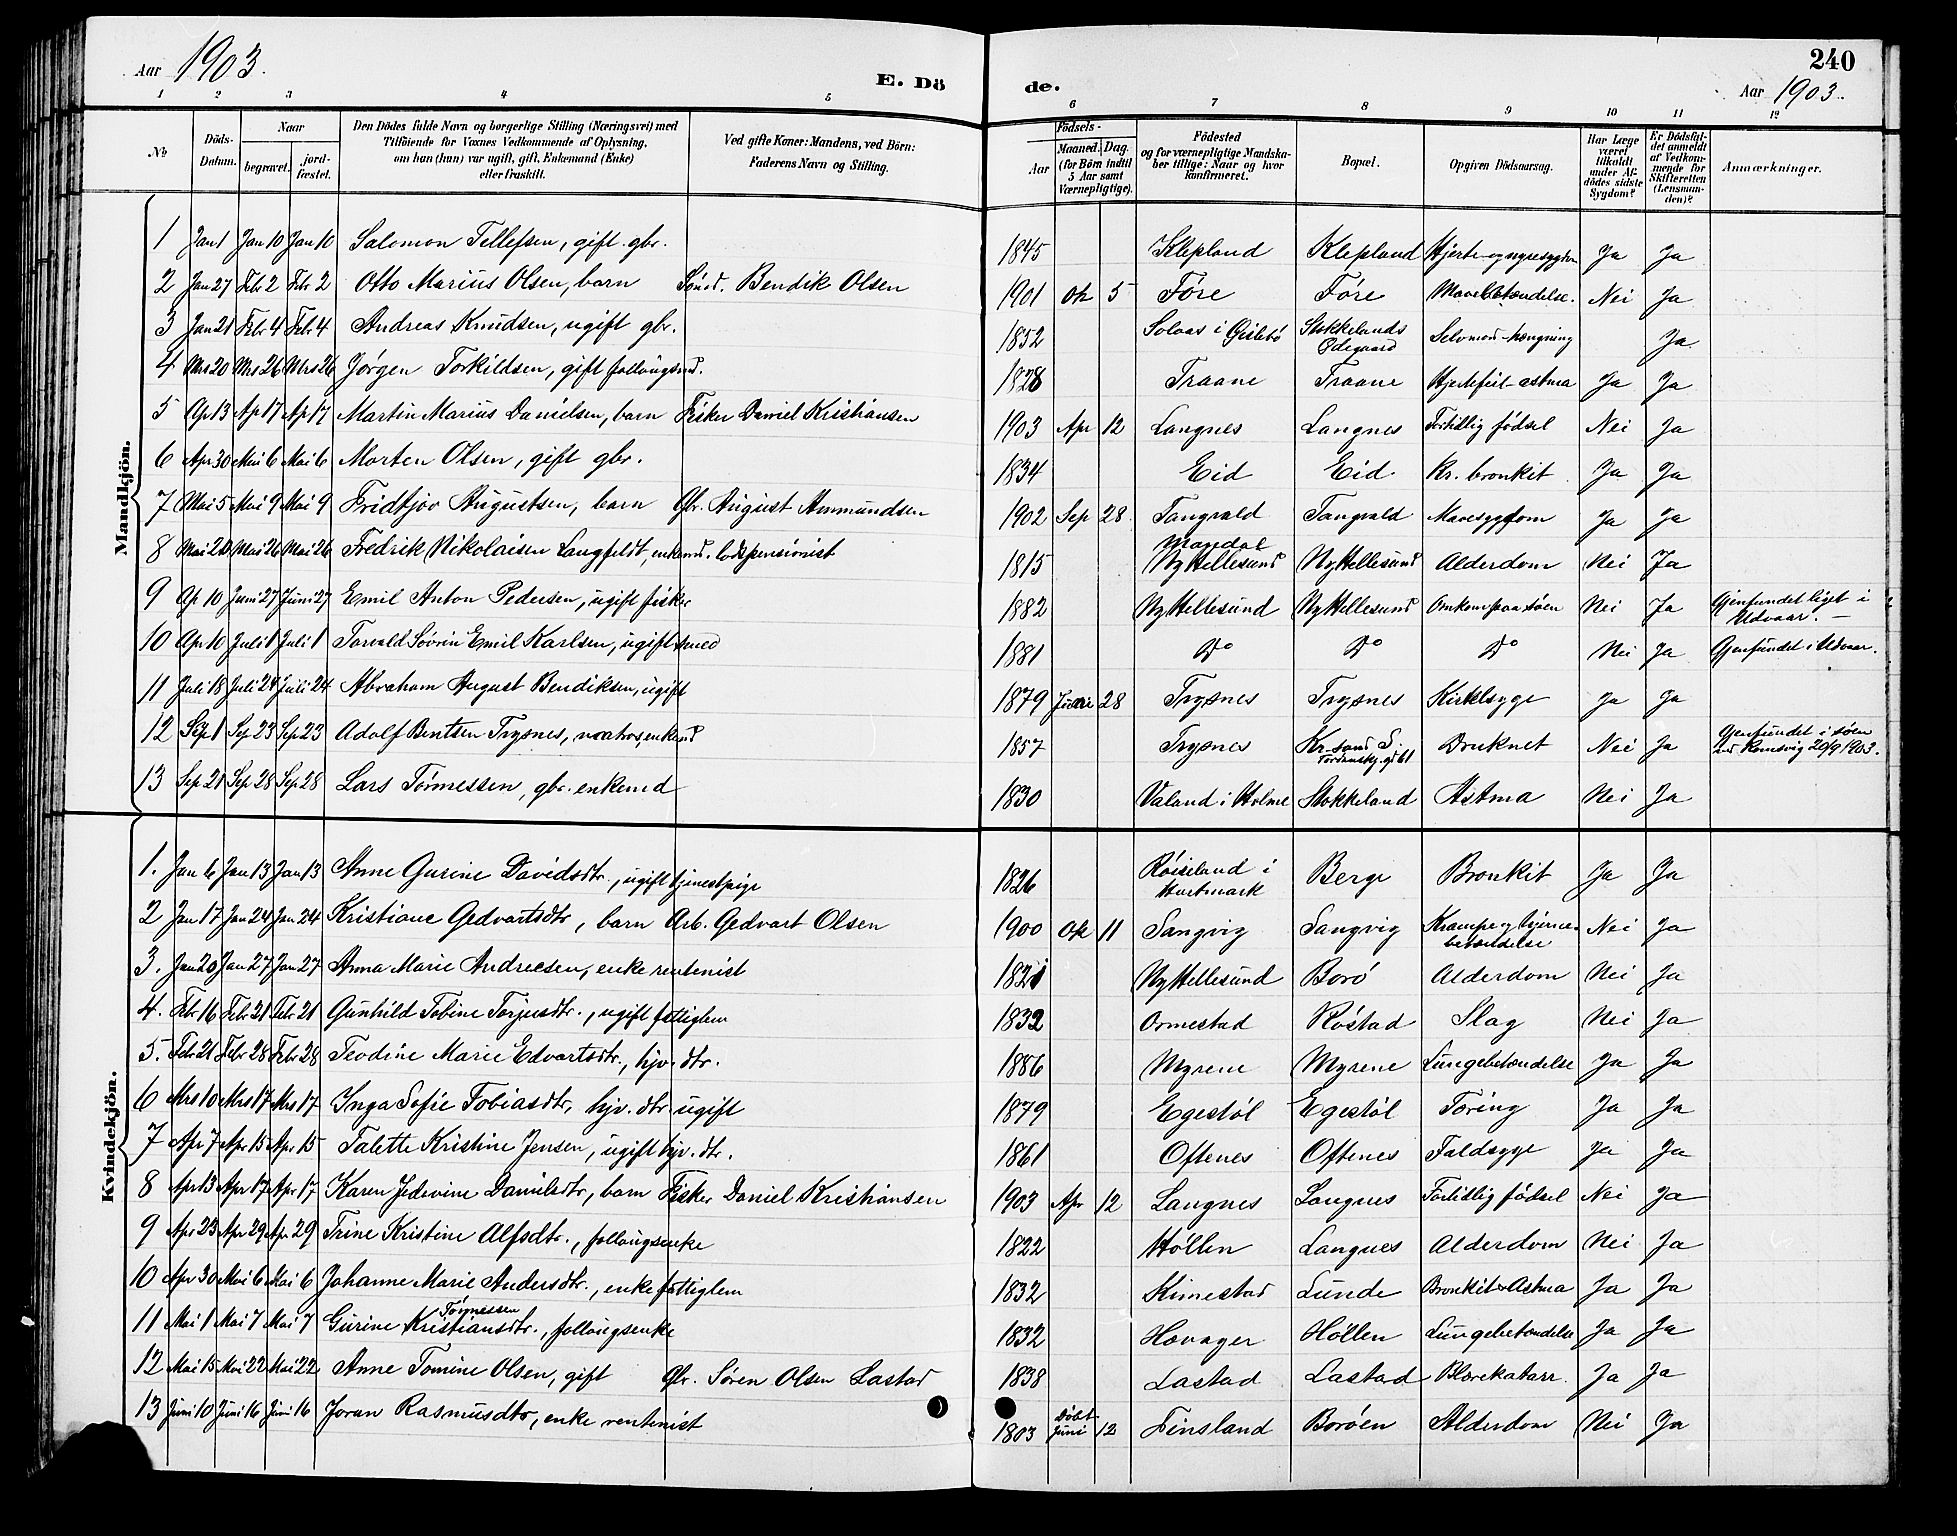 Aar 1903.
E. Döde.
240
Aar 1903.
1 2 3 4 5 6 7 8 9 10 11 12
No
Döds-Datum.
Naar
begravet.
jord-fæstet.
Den Dödes fulde Navn og borgerlige Stilling (Næringsvei) med
Tilföiende for Voxnes Vedkommende af Oplysning,
om han (hun) var ugift, gift, Enkemand (Enke)
eller fraskilt.
Ved gifte Koner: Mandens, ved Börn:
Faderens Navn og Stilling.
Födsels-
Aar
Maaned. Dag.
(for Börn indtil
5 Aar samt
Værnepligtige).
Födested
og for værnepligtige Mandska-
ber tillige: Naar og hvor
konfirmeret.
Bopæl.
Opgiven Dödsaarsag.
Har Læge
været
tilkaldt
under Af-
dödes sidste
Sygdom?
Er Dödsfal-
det anmeldt
af Vedkom-
mende for
Skifteretten
(Lensman-
den)?
Anmærkninger.
Mandkjön.
1 Jan 1 Jan 10 Jan 10 Salomon Tellefsen, gift gbr. 1845 Klepland Klepland Hjerte og nyresygdom Ja Ja
2 Jan 27 Febr 2 Febr 2 Otto Marius Olsen, barn Sömd. Bendik Olsen 1901 Ok 5 Føre Føre Mavebetændelse. Nei Ja
3 Jan 21 Febr 4 Febr 4 Andreas Knudsen, ugift gbr. 1852 Solaas i Gislebø Stokkelands Ødegaard Selvmord hængning Ja
4 Mrs 20 Mrs 26 Mrs 26 Jørgen Torkildsen, gift follaugsmd. 1828 Traane Traane Hjertefeil astma Ja Ja
5 Apr 13 Ap 17 Ap 17 Martin Marius Danielsen, barn Fisker Daniel Kristiansen 1903 Apr 12 Langnes Langnes Fortidlig födsel Nei Ja
6 Apr 30 Mai 6 Mai 6 Morten Olsen, gift gbr. 1834 Eid Eid. Kr. bronkit Ja Ja
7 Mai 5 Mai 9 Mai 9 Fridtjov Augustsen, barn Gbr. August Ammundsen 1902 Sep 28. Tangvald Tangvald Mavesygdom Ja Ja
8 Mai 20 Mai 26 Mai 26 Fredrik Nikolaisen Langfeldt, enkemd. lodspensionist 1815 Mandal Ny Hellesund Ny Hellesund Alderdom Nei Ja
9 Ap 10 Juni 27 Juni 27 Emil Anton Pedersen, ugift fisker 1882 Ny Hellesund Ny Hellesund Omkom paa søen Nei Ja Gjenfundet liget i Udvaar. —
10 Ap 10 Juli 1 Juli 1 Torvald Søvrin Emil Karlsen, ugift smed 1881 Do Do Do Nei Ja Gjenfundet i Udvaar.
11 Juli 18 Juli 24 Juli 24 Abraham August Bendiksen, ugift 1879 28 Trysnes Trysnes Kirtelsyge Ja Ja
12 Sep 1 Sep 23 Sep 23 Adolf Bentsen Trysnes, matros, enkemd 1857 Trysnes Kr.sand S. Druknet Nei Ja Gjenfundet i søen ved Romsvig 20/9 1903.
13 Sep 21 Sep 28 Sep 28 Lars Tørmessen, gbr. enkemd 1830 Valand i Holme Stokkeland Astma Nei Ja
Kvindekjön.
1. Jan 6 Jan 13 Jan 13 Anne Gurine Davidsdtr., ugift tjenestpige 1826 Røiseland i Hartmark Berge Bronkit Ja Ja
2 Jan 17 Jan 24 Jan 24 Kristiane Gedvartsdtr, barn Arb. Gedvart Olsen 1900 Ok 11 Langvig Langvig Krampe og hjerne-betændelse Nei Ja
3. Jan 20 Jan 27 Jan 27 Anna Marie Andreesen, enke rentenist 1821 Ny Hellesund Borø Alderdom Nei Ja
4. Febr 16 Febr 21 Febr 21 Gunhild Tobine Torjusdtr., ugift fattiglem 1832 Ormestad Røstad Slag Nei Ja
5. Febr 21 Febr 28 Febr 28 Teodine Marie Edvartsdtr., hjv. dtr. 1886 Myrene Myrene Lungebetændelse Ja Ja
6 Mrs 10 Mrs 17 Mrs 17 Inga Sofie Tobiasdtr, hjv. dtr ugift 1879 Egestøl Egestøl Tæring Ja Ja
7 Apr 7 Apr 15 Apr 15 Talette Kristine Jensen, ugift hjv. dtr. 1861 Oftenes Oftenes Faldsyge Ja Ja
8 Apr 13 Apr 17 Apr 17 Karen Jedevine Danilsdtr, barn Fisker Daniel Kristiansen 1903 Apr 12 Langnes Langnes Fortidlig födsel Nei Ja
9 Apr 23 Apr 29 Apr 29 Trine Kristine Alfsdtr., follaugsenke 1822 Høllen Langnes Alderdom Nei Ja
10 Apr 30 Mai 6 Mai 6 Johanne Marie Andersdtr., enke fattiglem 1832 Kimestad Lunde Bronkit & Astma Ja Ja
11 Mai 1 Mai 7 Mai 7 Gurine Kristiansdtr. Tørmessen, follaugsenke 1832 Hovager Høllen Lungebetændelse Ja Ja
12 Mai 15 Mai 22 Mai 22 Anne Tomine Olsen, gift Gbr. Søren Olsen Lastad 1838 Lastad Lastad Blærekatarr. Ja Ja
13 Juni 10 Juni 16 Juni 16 Joran Rasmusdtr, enke rentenist 1803 Døbt Juni 12 Finsland Borøen Alderdom Nei Ja